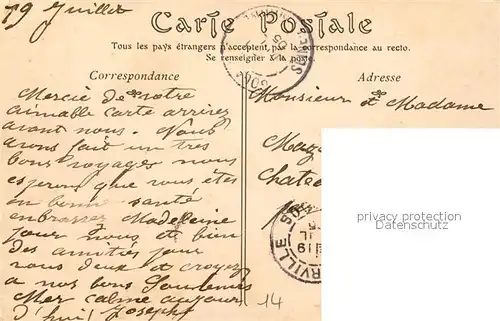 19 Juillet
Carte Postale
Tous les pays étrangers n'acceptent pas la correspondance au recto.
Se renseigner à la poste.
Correspondance
Adresse
Mercie de votre
aimable carte arrivez
avant nous. Nous
avons fait un tres
bons voyages nous
esperons que vous êtes
en bonne santé
enbrassez Madeleine
pour nous et bien
des amitiés pour
vous deux et croyez
a nos bons Souvenirs
Mer calme aujour
d'hui Joseph
Monsieur et Madame
Chateau
14
privacy protection
Datenschutz